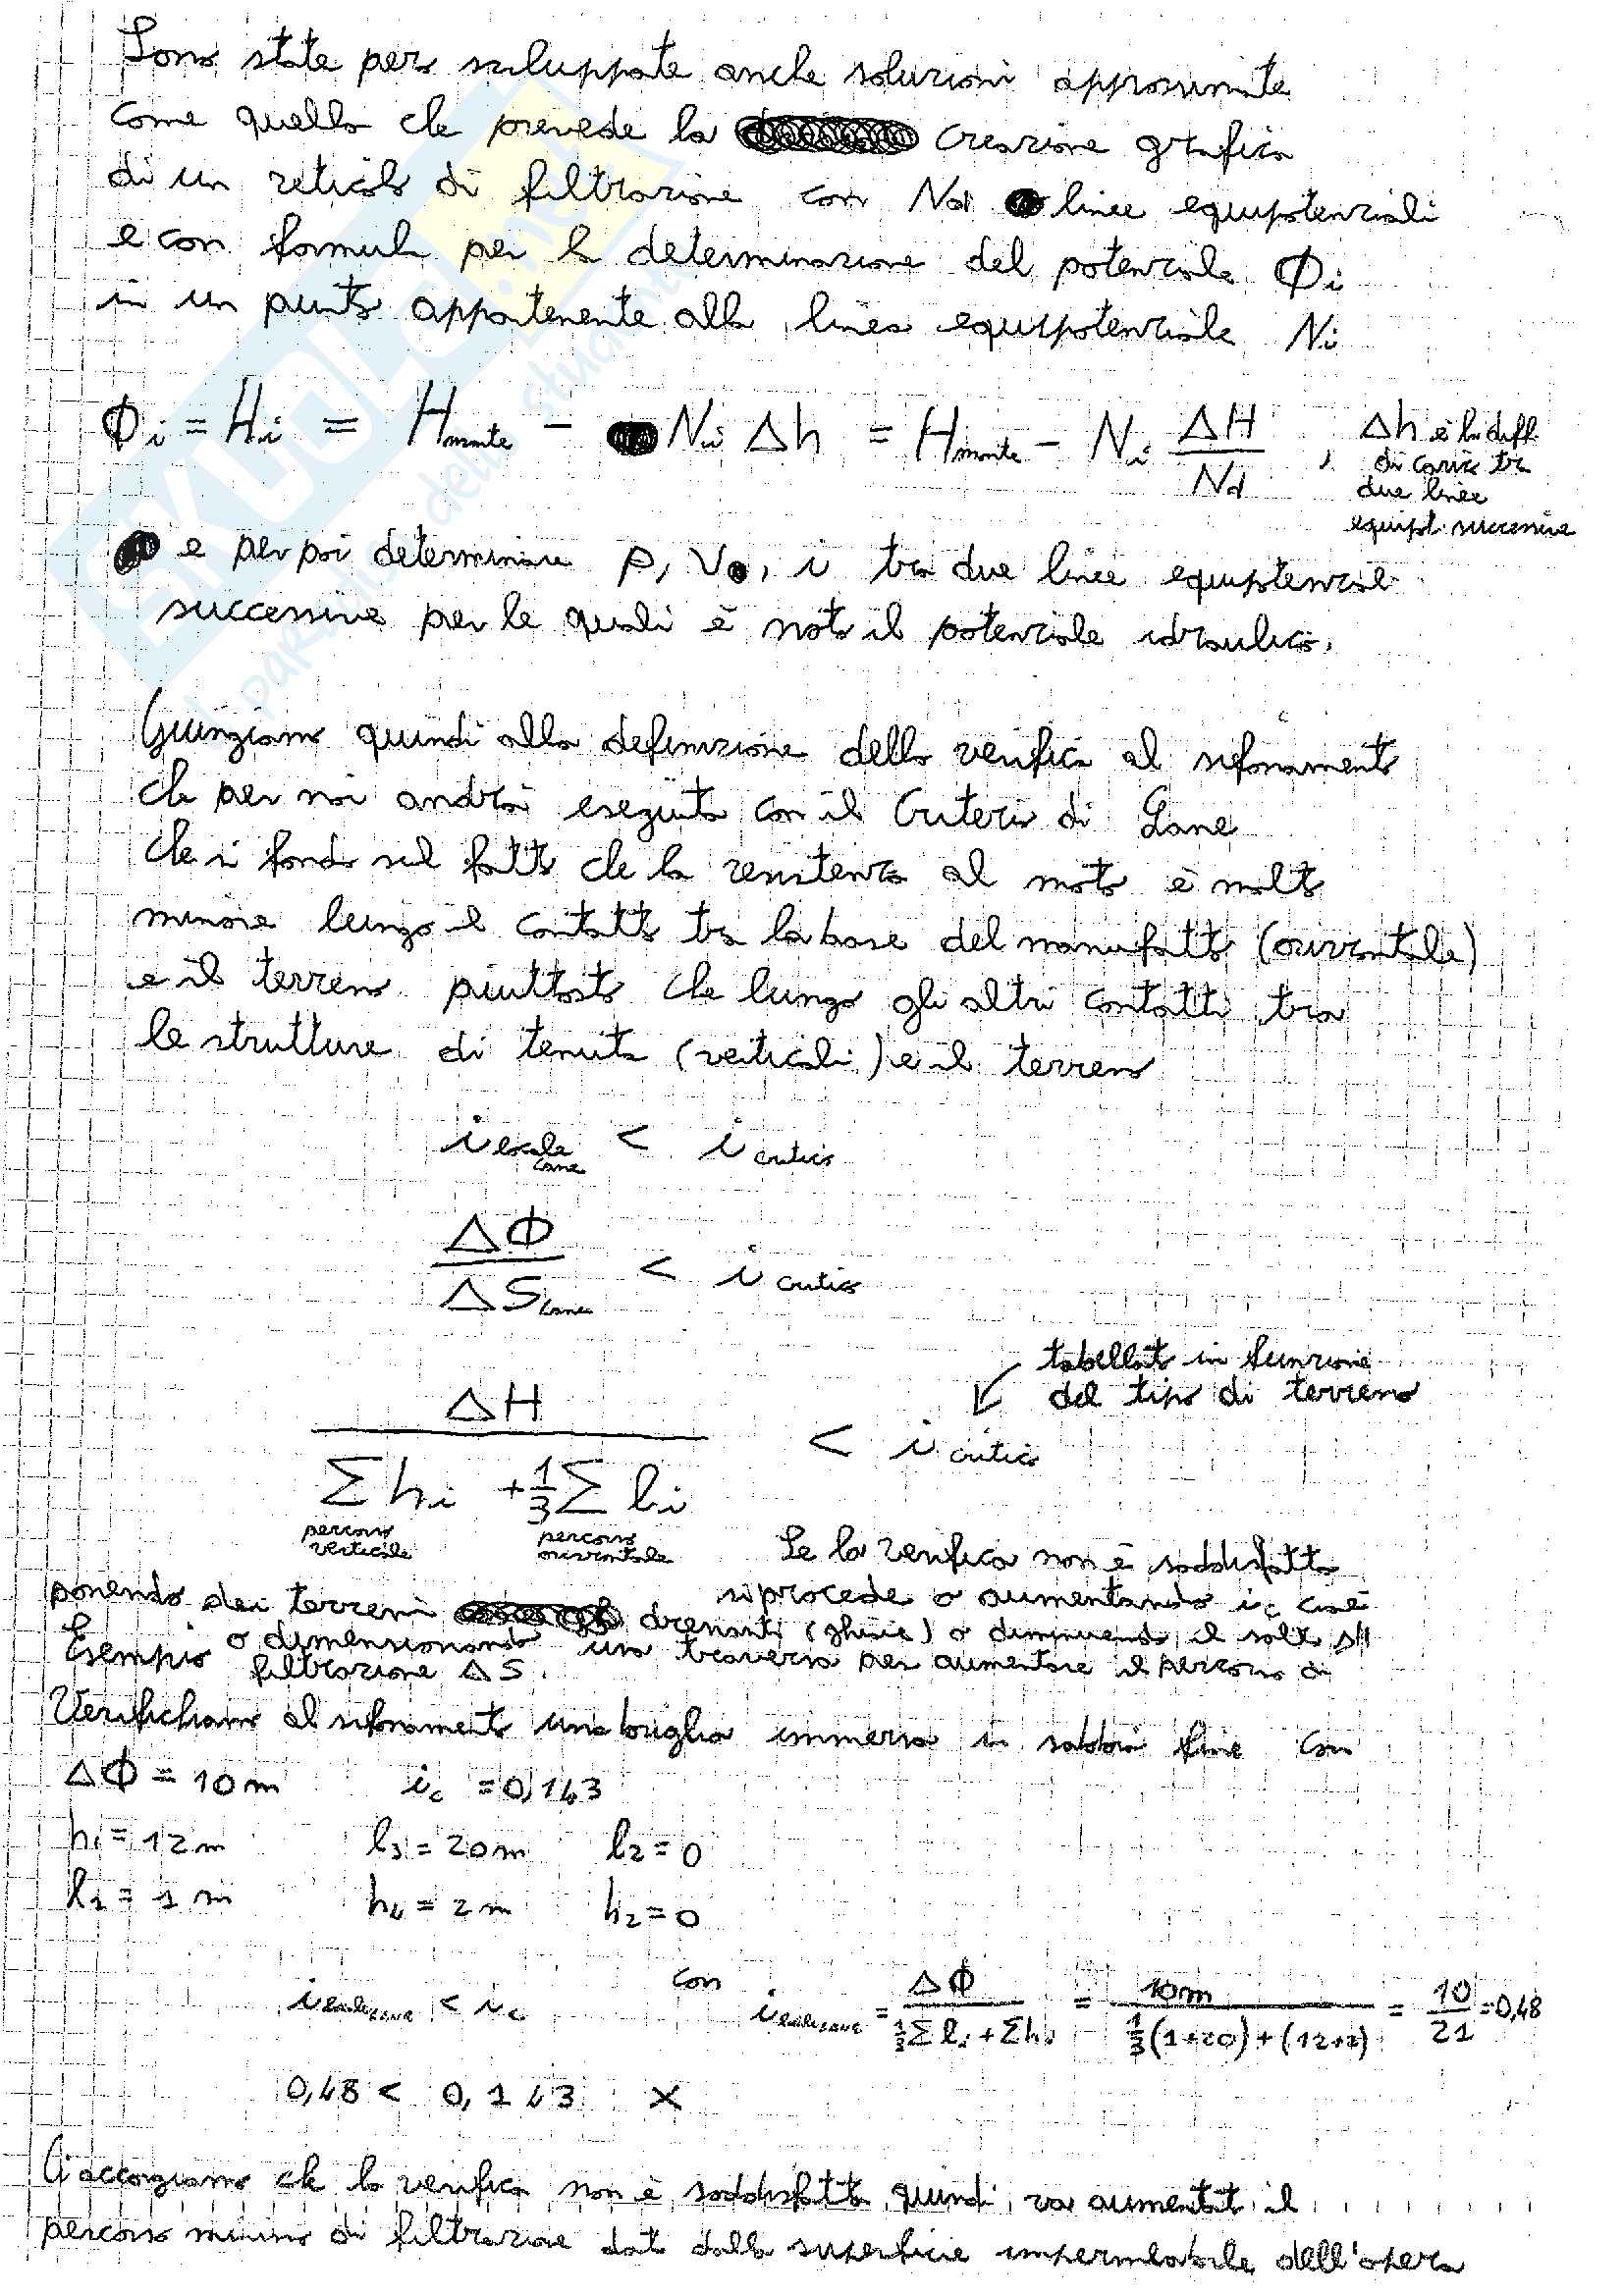 Sono state però sviluppate anche soluzioni approssimate
come quella che prevede la creazione grafica
di un reticolo di filtrazione con Nd linee equipotenziali
e con formula per la determinazione del potenziale Φi
in un punto appartenente alla linea equipotenziale Ni
Φi = Hi = Hmonte - Ni Δh = Hmonte - Ni ΔH/Nd , Δh è la diff.
di carico tra
due linee
equipot. successive
e per poi determinare p, v, i tra due linee equipotenziali
successive per le quali è noto il potenziale idraulico.
Giungiamo quindi alla definizione della verifica al sifonamento
che per noi andrà eseguita con il Criterio di Lane
che si fonda sul fatto che la resistenza al moto è molto
minore lungo il contatto tra la base del manufatto (orizzontale)
e il terreno piuttosto che lungo gli altri contatti tra
le strutture di tenuta (verticali) e il terreno
i reale Lane < i critico
ΔΦ/ΔS Lane < i critico
tabellato in funzione
del tipo di terreno
ΔH / (Σhi + 1/3 Σli) < i critico
percorso verticale percorso orizzontale
Se la verifica non è soddisfatta
si procede o aumentando ic cioè
ponendo dei terreni drenanti (ghiaie) o diminuendo il salto ΔH
o dimensionando una traversa per aumentare il percorso di
filtrazione ΔS.
Esempio
Verifichiamo al sifonamento una briglia immersa in sabbia fine con
ΔΦ = 10 m ic = 0,143
h1 = 12 m l3 = 20 m l2 = 0
l1 = 1 m h4 = 2 m h2 = 0
i reale Lane < ic con i reale Lane = ΔΦ / (1/3 Σli + Σhi) = 10m / (1/3 (1+20) + (12+2)) = 10/21 = 0,48
0,48 < 0,143 X
Ci accorgiamo che la verifica non è soddisfatta quindi va aumentato il
percorso minimo di filtrazione dato dalla superficie impermeabile dell'opera